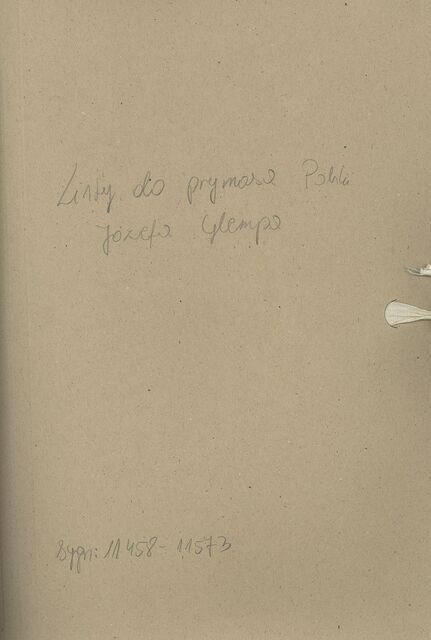 Listy do prymasa Polski
Józefa Glempa
Sygn: 11 458 - 11573